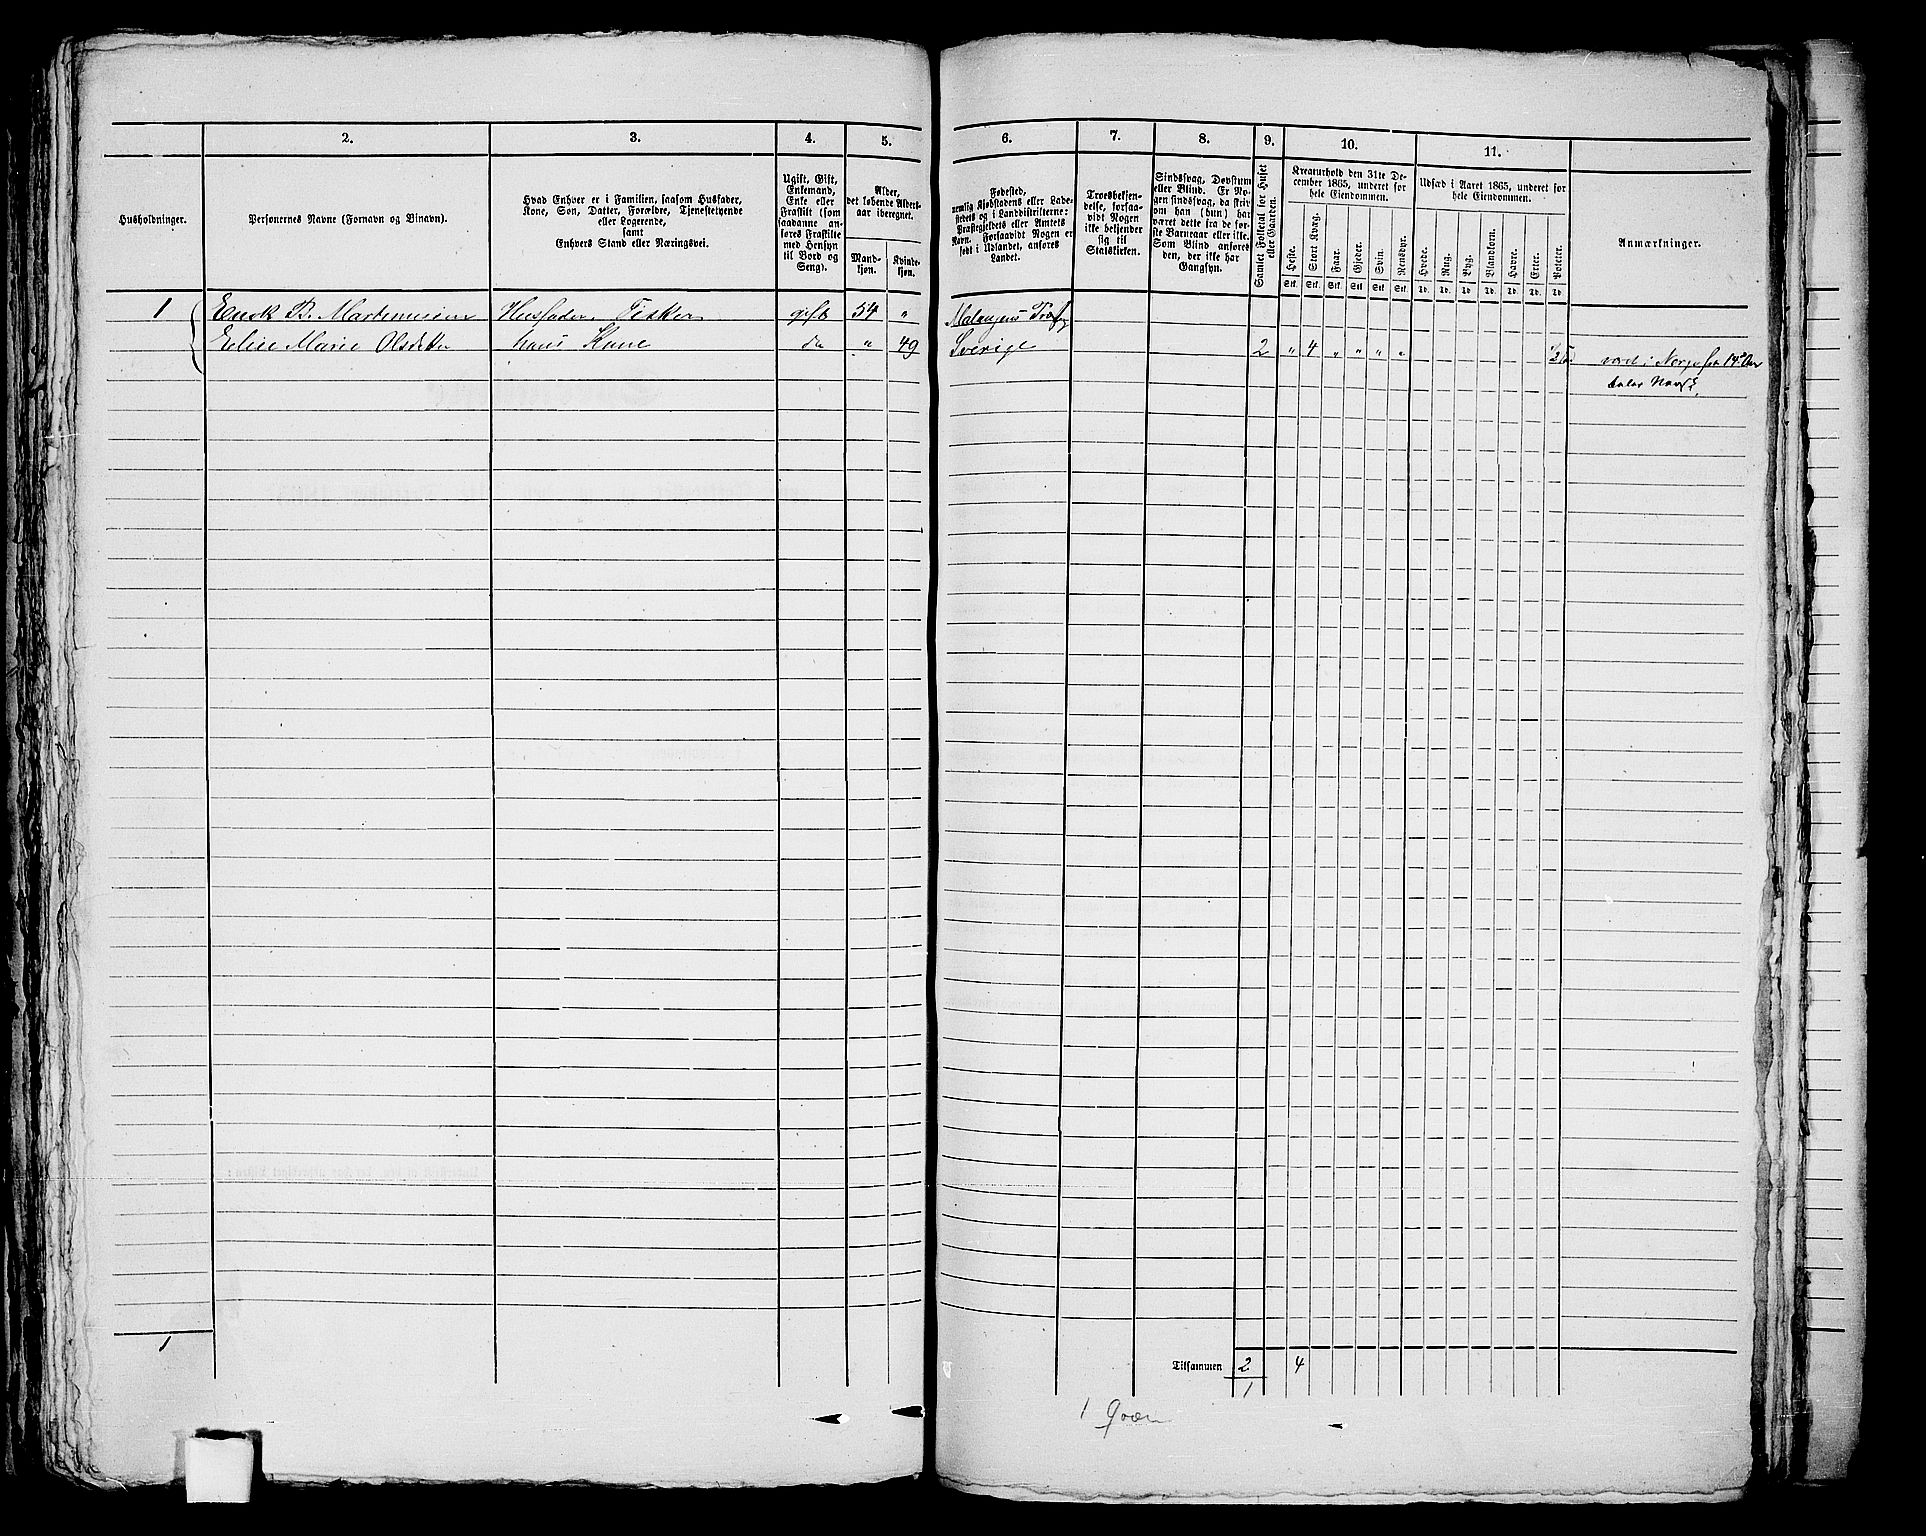 2. 3. 4. 5. 6. 7. 8. 9. 10. 11.
Husholdninger.
Personernes Navne (Fornavn og Binavn).
Hvad Enhver er i Familien, saasom Husfader,
Kone, Søn, Datter, Forældre, Tjenestetyende
eller Logerende,
samt
Enhvers Stand eller Næringsvei.
Ugift, Gift,
Enkemand,
Enke eller
Fraskilt (som
saadanne an-
føres Fraskilte
med Hensyn
til Bord og
Seng).
Alder,
det løbende Alders-
aar iberegnet.
Mand-
kjøn.
Kvinde-
kjøn.
Fødested,
nemlig Kjøbstadens eller Lade-
stedets og i Landdistrikterne:
Præstegjeldets eller Amtets
Navn. Forsaavidt Nogen er
født i Udlandet, anføres
Landet.
Troesbekjen-
delse, forsaa-
vidt Nogen
ikke bekjender
sig til
Statskirken.
Sindssvag, Døvstum
eller Blind. Er No-
gen sindssvag, da skriv
om han (hun) har
været dette fra de før-
ste Barneaar eller ikke.
Som Blind anføres
den, der ikke har
Gangsyn.
Samlet Folketal for Huset
eller Gaarden.
Kreaturhold den 31te De-
cember 1865, underet for
hele Eiendommen.
Heste. Stort Kvæg. Faar. Gjeder. Svin. Rensdyr.
Stk. Stk. Stk. Stk. Stk. Stk.
Udsæd i Aaret 1865, underet for
hele Eiendommen.
Hvede. Rug. Byg. Blandkorn. Havre. Erter. Poteter.
Td. Td. Td. Td. Td. Td. Td.
Anmærkninger.
1 Enok B. Marthinusen Husfader, Fisker gift 54 " Malangens
Elise Marie Olsdatter hans Kone do " 49 Sverige 2 " 4 " " " "
været i Norge fra 14 Aar
taler Norsk.
1
Tilsammen 2 4
1
1 Qvæn